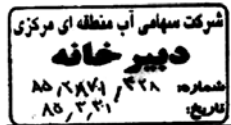 شرکت سهامی آب منطقه ای مرکزی
دبیرخانه
شماره:
تاریخ: ۸۵٫۳٫۳۱